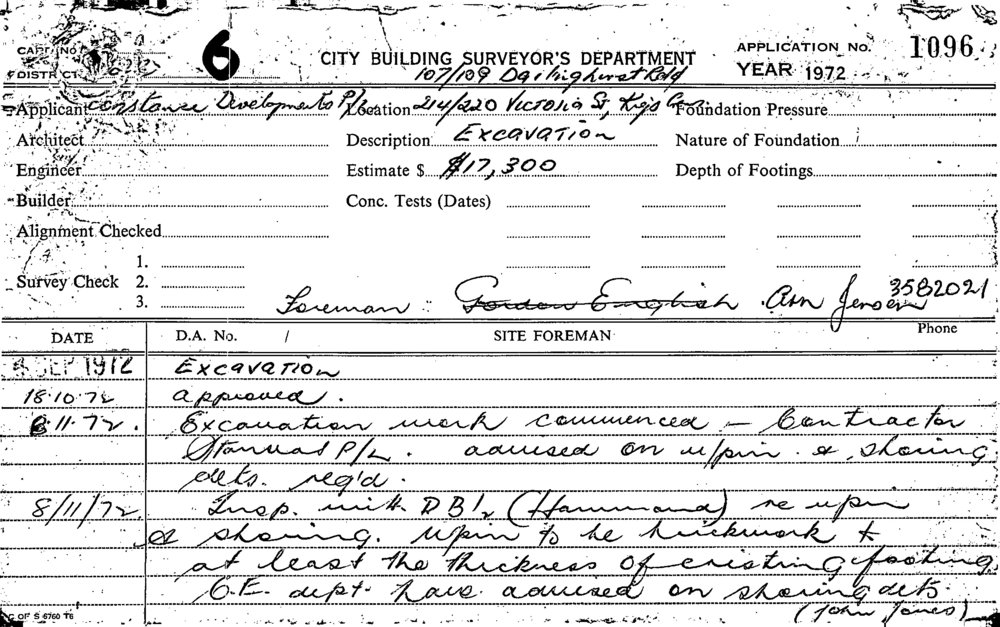 CITY BUILDING SURVEYOR'S DEPARTMENT
APPLICATION No. 1096
CARD No.
6
DISTRICT
107/109 Darlinghurst Rd
YEAR 1972
Applicant Constance Developments P/L Location 214/220 VICTORIA St, Kings Cross Foundation Pressure
Architect Description EXCAVATION Nature of Foundation
Engineer Estimate $ $17,300 Depth of Footings
Builder Conc. Tests (Dates)
Alignment Checked
1.
Survey Check 2.
3.
Foreman :- Gordon English Arn Jensen 3582021
Phone
DATE D.A. No. / SITE FOREMAN
SEP 1972 EXCAVATION
18.10.72 approved.
6.11.72. Excavation work commenced – Contractor
P/L. advised on u/pin. & shoring
dets. req'd.
8/11/72. Insp. with D.B.I. (Hammond) re upin
& shoring. Upin to be brickwork &
at least the thickness of existing footing.
C.E. dept. have advised on shoring dets.
(John Jones)
C OF S 6760 T6